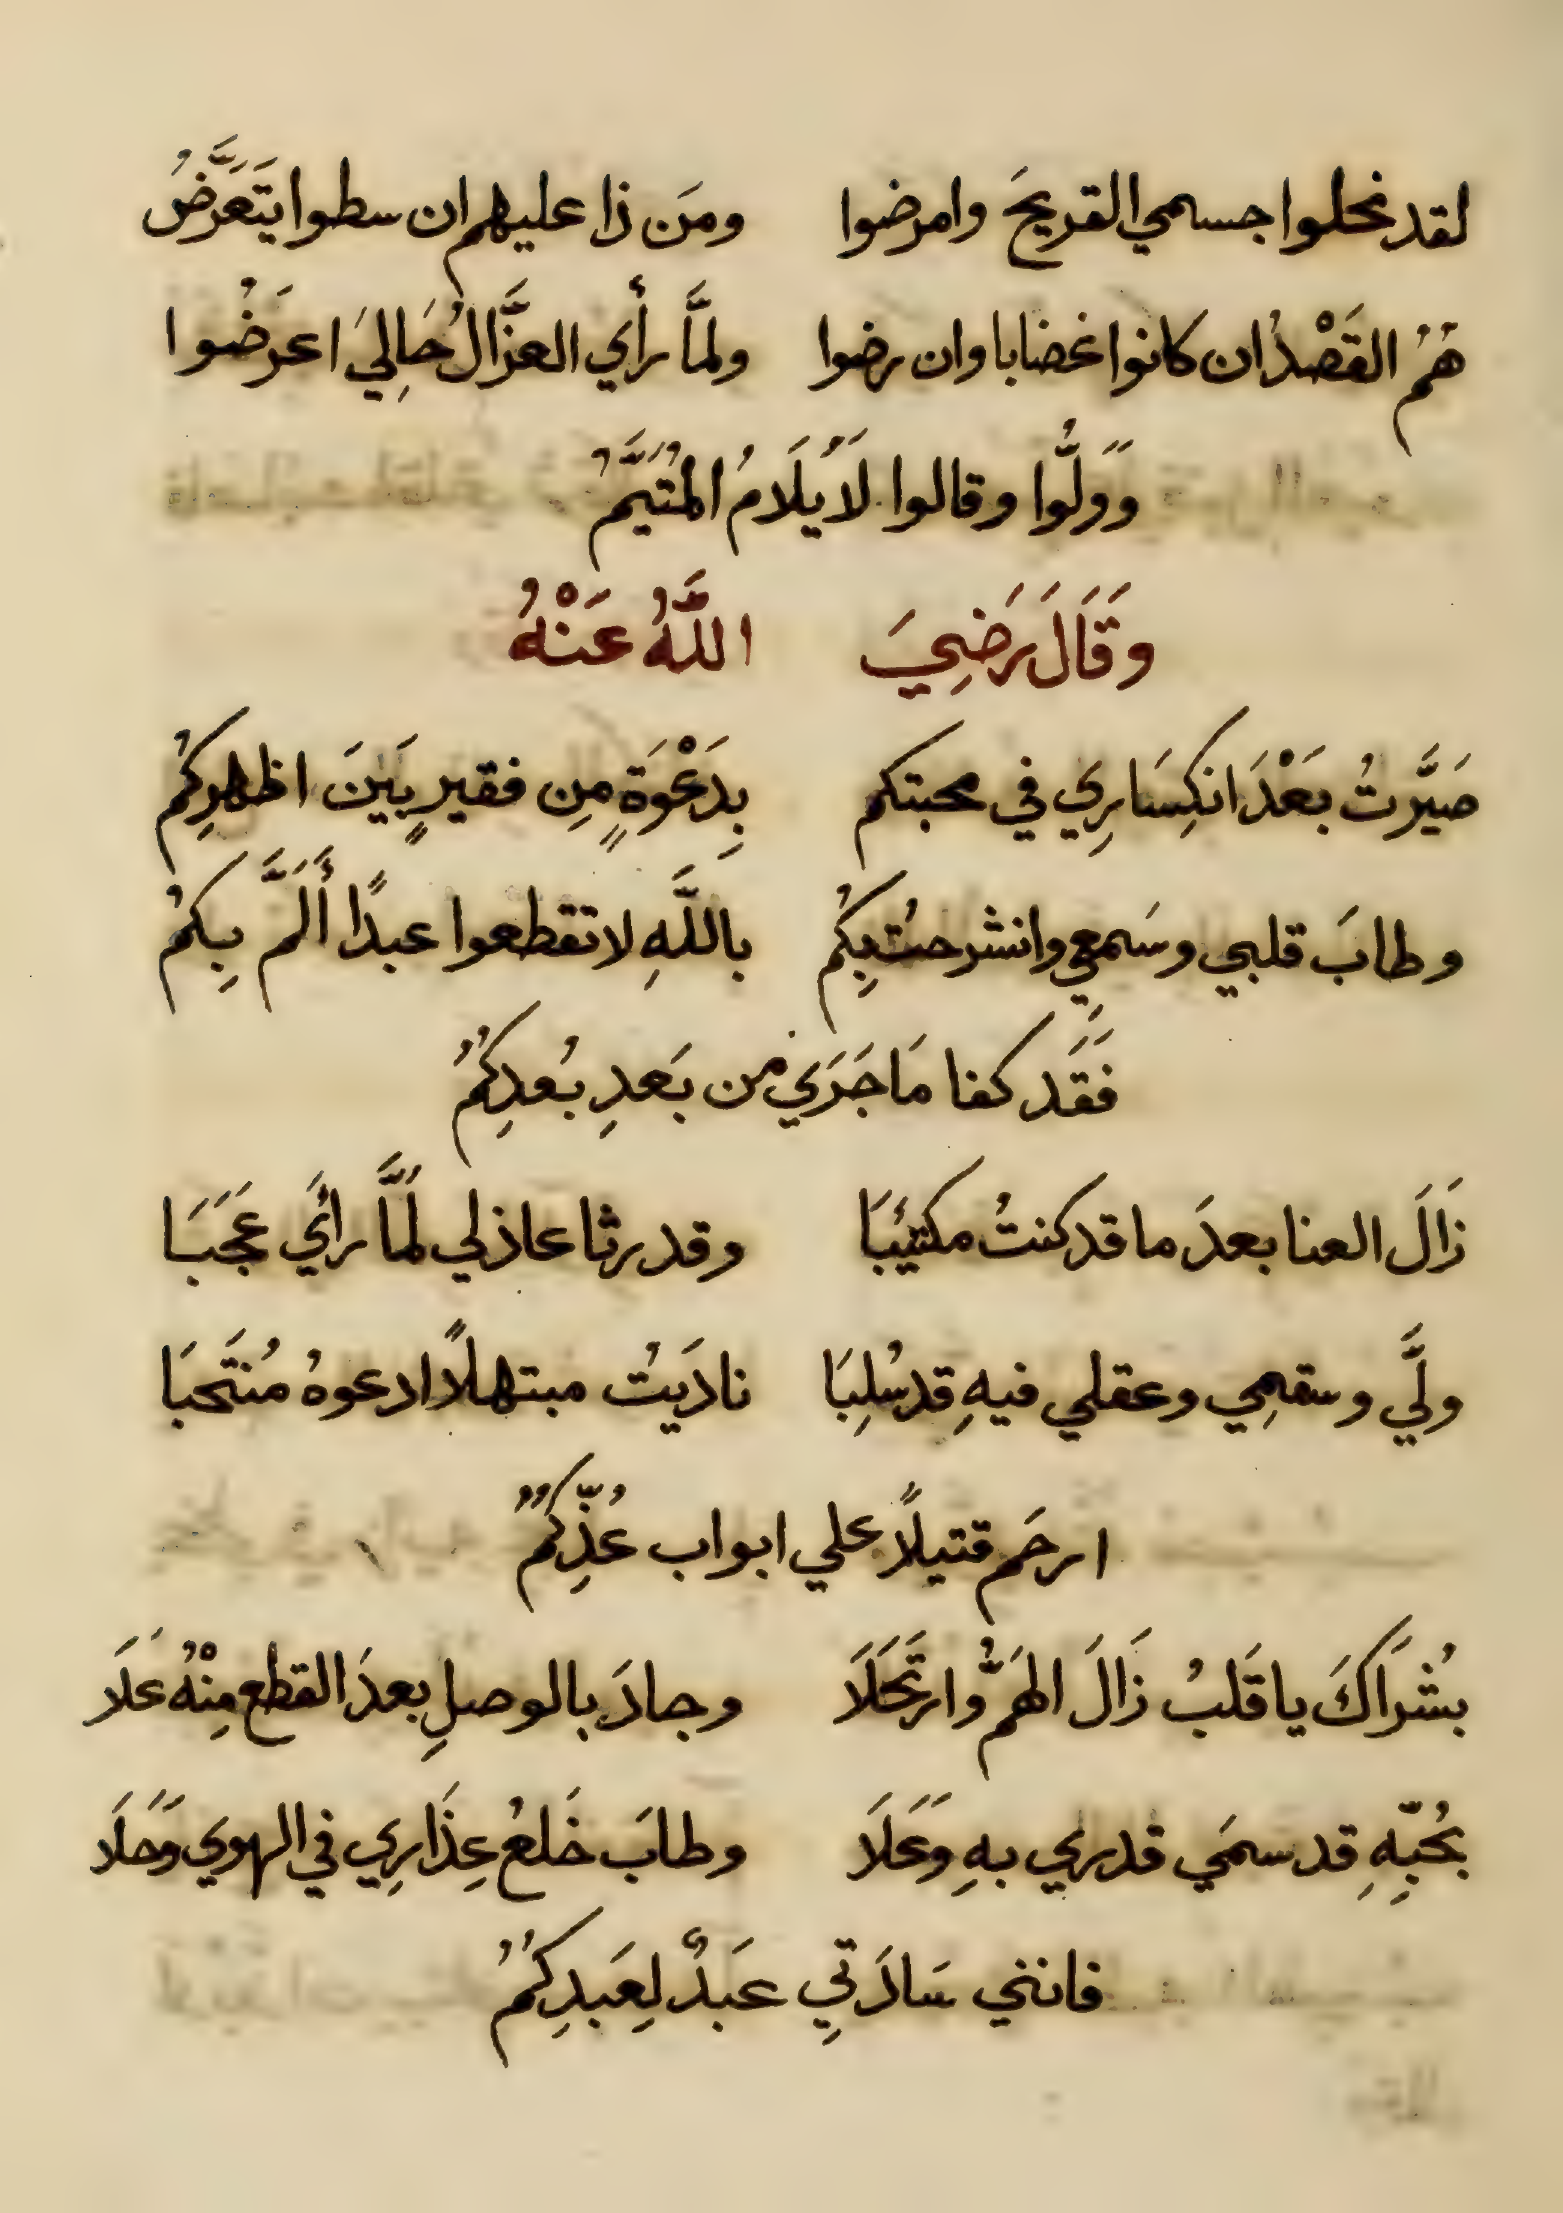 لقد نحلوا جسمي القريحَ وامرضوا ومَن ذا عليهم ان سطوا يتَعَرَّضُ
هُمُ القَصْدُ ان كانوا غضابا وان رضوا ولمَّا رأي العزَّالُ حَالِيَ اعرَضُوا
وَوَلُّوا وقالوا لَا يُلَامُ المُتَيَّمُ
وَقَالَ رَضِيَ اللَّهُ عَنْهُ
صَيَّرتُ بَعْدَ انكِسَارِي في محبتكم بِدَعْوَةٍ مِن فقيرٍ بَينَ اظهرِكُم
وطابَ قلبي وسَمعِي وانشرحتُ بِكُم باللَّهِ لا تقطعوا عبدًا أَلَمَّ بِكُم
فَقَد كفا مَا جَرَي من بَعدِ بُعدِكُمُ
زَالَ العنا بعدَ ما قد كنتُ مكتئبَا وقد رثا عاذلي لَمَّا رأَي عَجَبَا
ولَّي وسقمِي وعقلي فيهِ قد سُلِبَا نادَيتُ مبتهلًا ادعوهُ مُنتَحبَا
ارحَم قتيلًا علي ابواب عُذِّكُمُ
بُشرَاكَ يا قَلبُ زَالَ الهَمُّ وارتَحَلَا وجادَ بالوصلِ بعدَ القطع مِنْهُ عَلَا
بحُبِّهِ قد سمَي قدري بهِ وَعَلَا وطابَ خَلعُ عِذَارِي في الهوي وَحَلَا
فانني سَادَتِي عَبدٌ لِعَبدِكُمُ